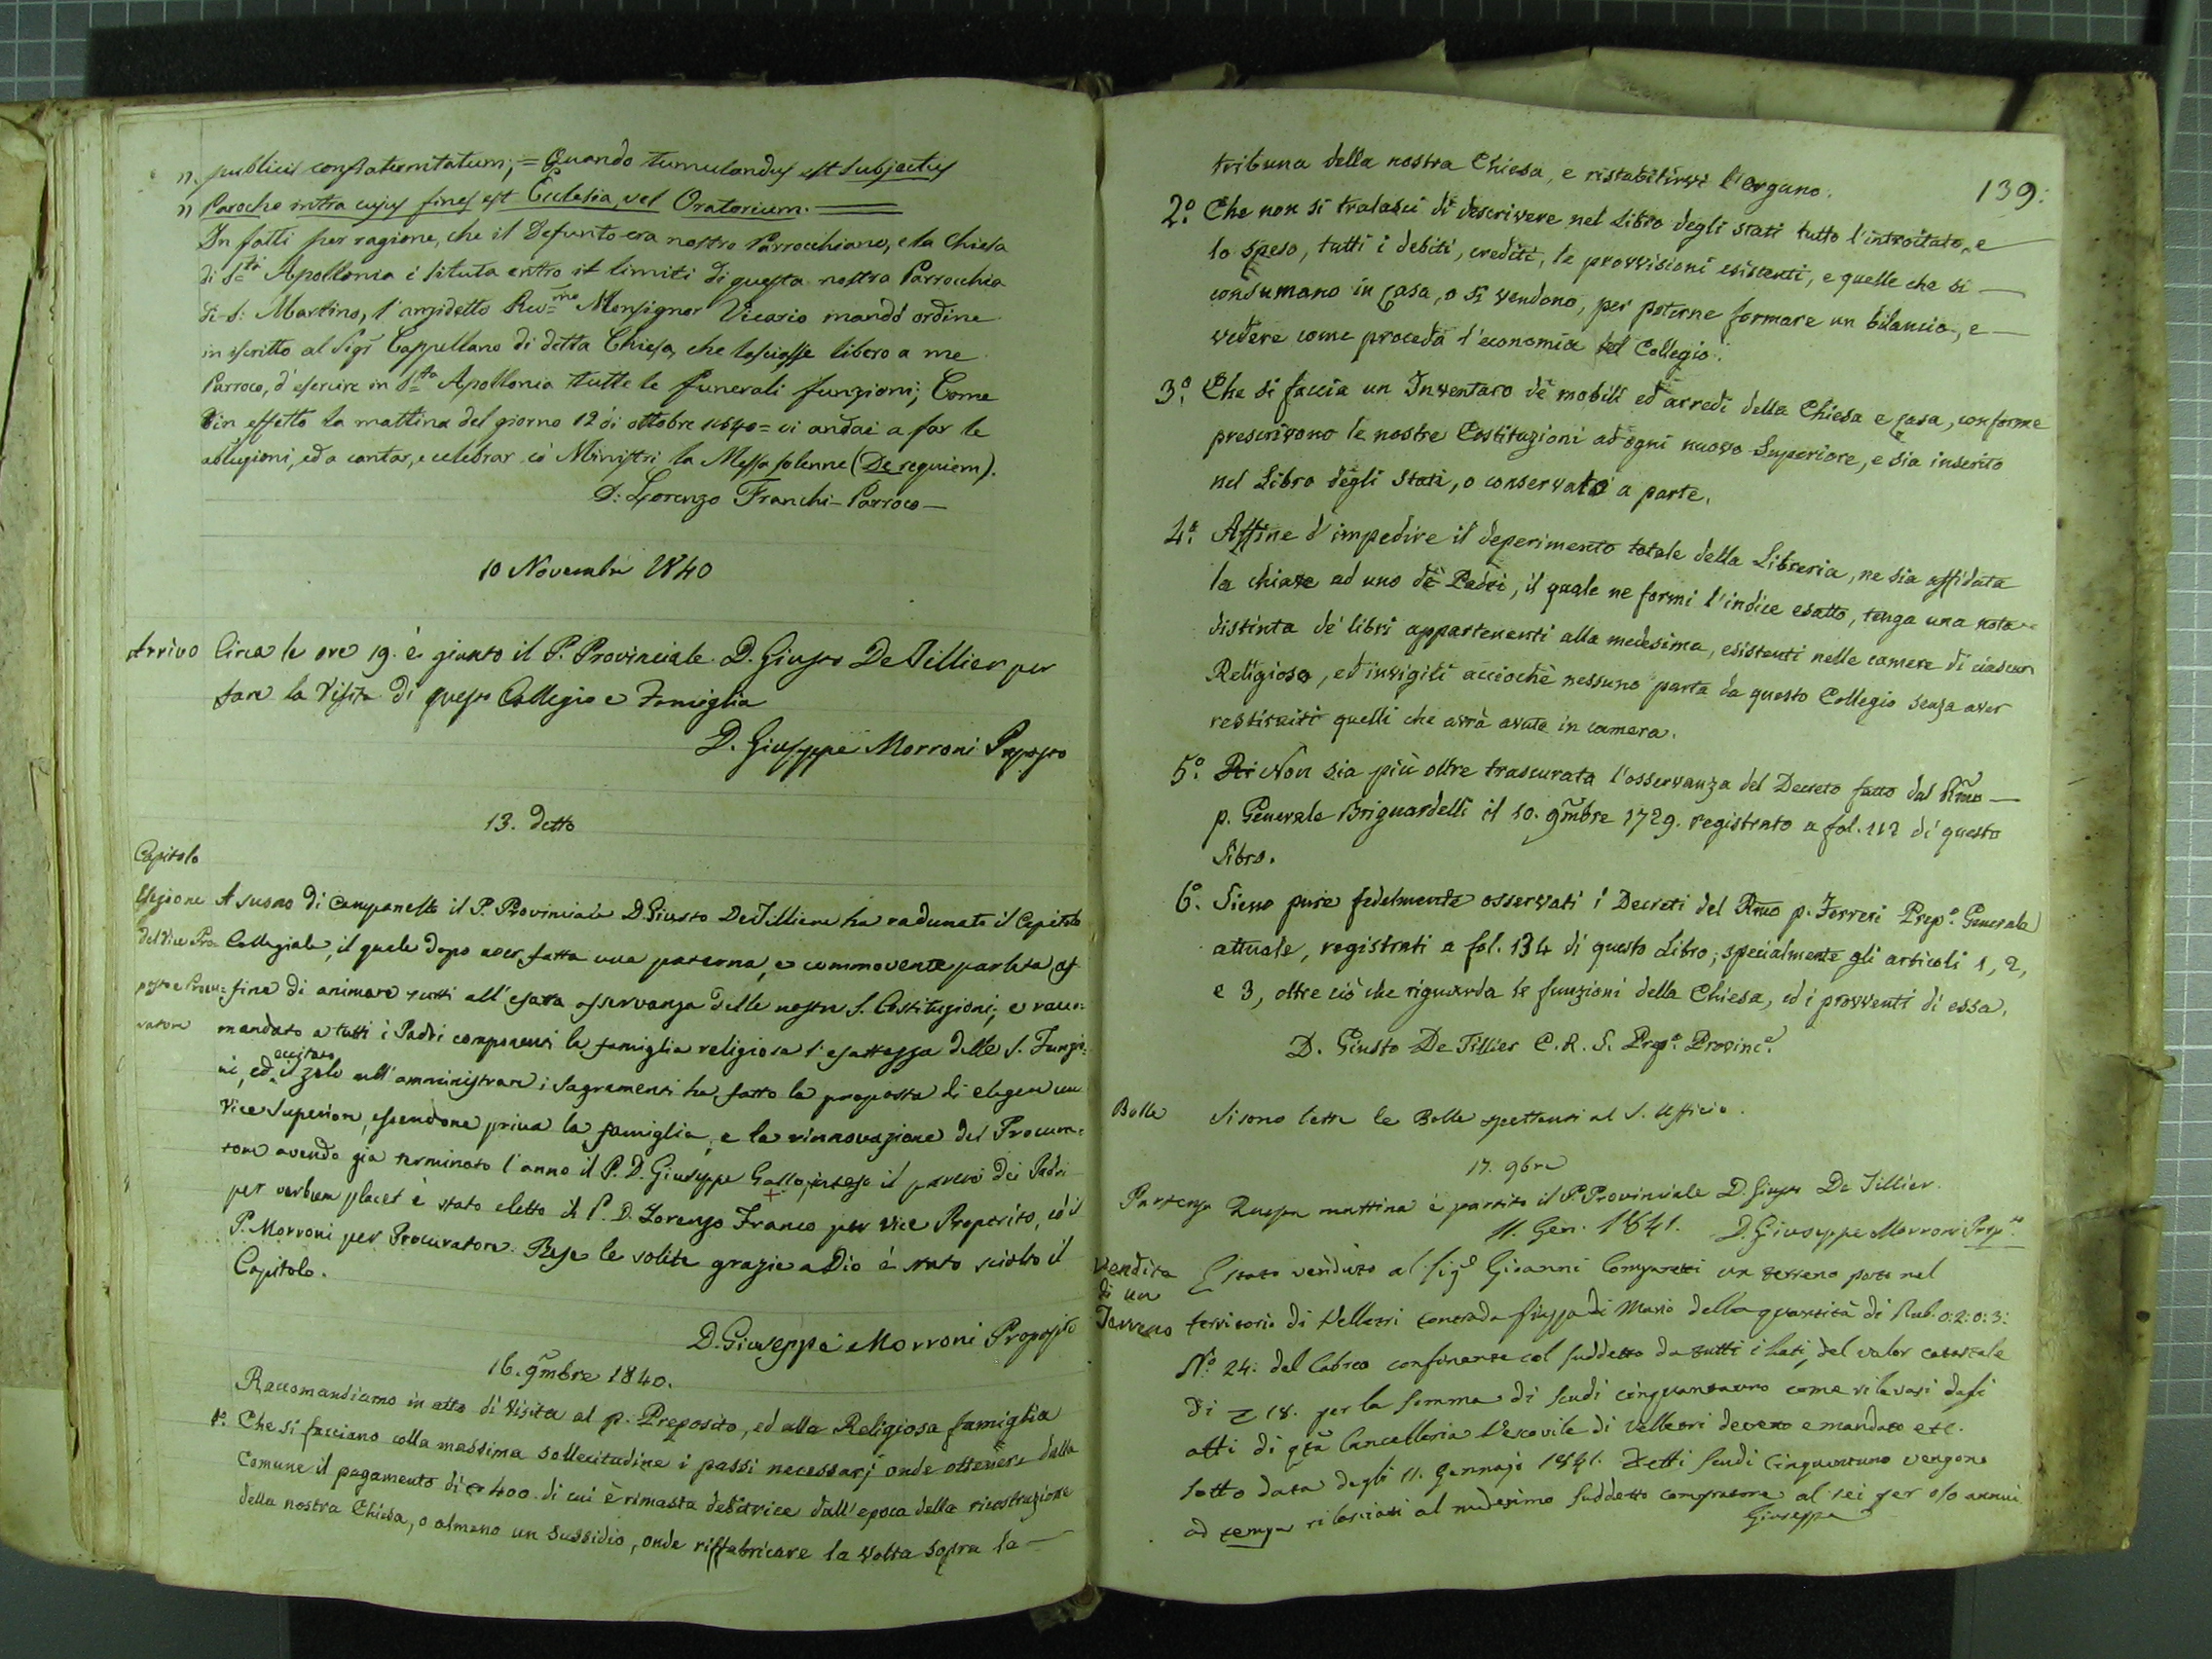 " publicis confraternitatum; = Quando tumulandus est subjectus
" Parocho intra cujus fines est Ecclesia, vel Oratorium.
In fatti per ragione, che il Defunto era nostro Parrocchiano, e la Chiesa
di Sta Apollonia è situta entro it limiti di questa nostra Parrocchia
di S: Martino, l'anzidetto Revmo Monsignor Vicario mandò ordine
in iscritto al Sigr Cappellano di detta Chiesa, che lasciasse libero a me
Parroco, d'esercire in Sta Apollonia tutte le funerali funzioni; Come
in effetto la mattina del giorno 12 di ottobre 1840 = ci andai a far le
asoluzioni, ed a cantar, e celebrar co' Ministri la Messa solenne (De requiem).
D: Lorenzo Franchi - Parroco -
10 Novembre 1840
Arrivo Circa le ore 19. è giunto il P. Provinciale D. Giusto De Tillier per
fare la Visita di questo Collegio e Famiglia
D. Giuseppe Morroni Preposto
13. detto
Capitolo
Elezione A suono di Campanello il P. Provinciale D. Giusto De Tilliere ha radunato il Capitolo
del Vice Pre= Collegiale, il quale dopo aver fatta una paterna, e commovente parlata, af=
posto e Procu= fine di animare tutti all'esatta osservanza delle nostre S. Costituzioni; e racco=
ratore mandato a tutti i Padri componenti la famiglia religiosa l'esattezza delle S. Funzio=
ni, ed eccitato il zelo nell'amministrare i Sagramenti ha fatto la proposta di elegere un
Vice Superiore, essendone priva la famiglia, e la rinnovazione del Procura=
tore avendo gia terminato l'anno il P. D. Giuseppe Gallo, inteso il parere dei Padri
per verbum placet è stato eletto il P. D. Lorenzo Franco per vice Preposito, ed il
P. Morroni per Procuratore. Rese le solite grazie a Dio è stato sciolto il
Capitolo.
D. Giuseppe Morroni Preposito
16. 9mbre 1840.
Raccomandiamo in atto di Visita al p. Preposito, ed alla Religiosa famiglia
1º. Che si facciano colla massima sollecitudine i passi necessarj onde ottenere dalla
Comune il pagamento di 400. di cui è rimasta debitrice dall'epoca della ricostruzione
della nostra Chiesa, o almeno un sussidio, onde riffabricare la volta sopra la -
139:
tribuna della nostra Chiesa, e ristabilirvi l'organo.
2º. Che non si tralasci di descrivere nel Libro degli stati tutto l'introitato, e
lo speso, tutti i debiti, crediti, le provvisioni esistenti, e quelle che si -
consumano in Casa, o si vendono, per poterne formare un bilancio, e -
vedere come proceda l'economia del Collegio.
3º. Che si faccia un Inventaro de' mobili ed arredi della Chiesa e casa, conforme
prescrivono le nostre Costituzioni ad ogni nuovo Superiore, e sia inserito
nel Libro degli Stati, o conservato a parte.
4º. Affine d'impedire il deperimento totale della Libreria, ne sia affidata
la chiave ad uno de' Padri, il quale ne formi l'indice esatto, tenga una nota
distinta de' libri appartenenti alla medesima, esistenti nelle camere di ciascun
Religioso, ed invigili acciochè nessuno parta da questo Collegio senza aver
restituiti quelli che avrà avuto in camera.
5º. Ri Non sia più oltre trascurata l'osservanza del Decreto fatto dal Rmo -
p. Generale Briguardelli il 10. 9mbre 1729. registrato a fol. 112 di questo
Libro.
6º. Sieno pure fedelmente osservati i Decreti del Rmo p. Ferreri Prepº. Generale
attuale, registrati a fol. 134 di questo Libro; specialmente gli articoli 1, 2,
e 3, oltre ciò che riguarda le funzioni della Chiesa, ed i provventi di essa.
D. Giusto De Tillier C. R. S. Prepº. Provincº.
Bolle Si sono lette le Bolle spettanti al S. Officio.
17. 9bre
Partenza Questa mattina è partito il P. Provinciale D. Giusto De Tillier.
11. Gen. 1841. D. Giuseppe Morroni Prepto
Vendita È stato venduto al Sigr Gioanni Comparetti un terreno posto nel
di un
Terreno territorio di Velletri contrada di Mario della quantità di Rub. 0:2:0:3:
Nº 24: del Cabreo confinante col suddetto da tutti i lati, del valor catastale
di 18. per la somma di scudi cinquantauno come rilevasi dagli
atti di qta Cancelleria Vescovile di Velletri decreto e mandato etc.
sotto data degli 11. Gennajo 1841. Detti scudi Cinquantuno vengono
ad tempus rilasciati al medesimo suddetto compratore al sei per o/o annui.
Giuseppe